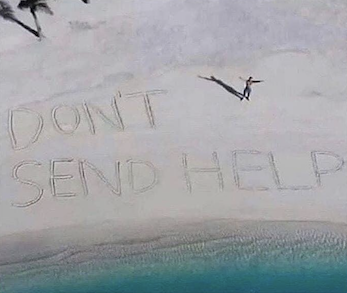 DON'T
SEND HELP